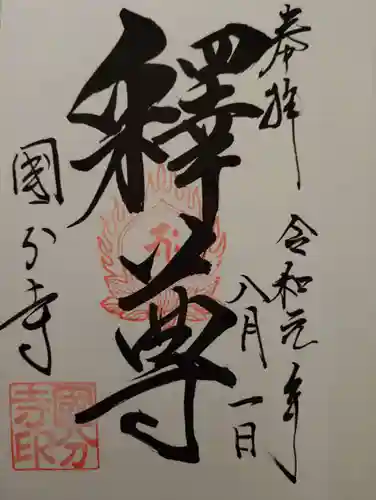 奉拝
令和元年
八月一日
釋尊
國分寺
國分
寺印